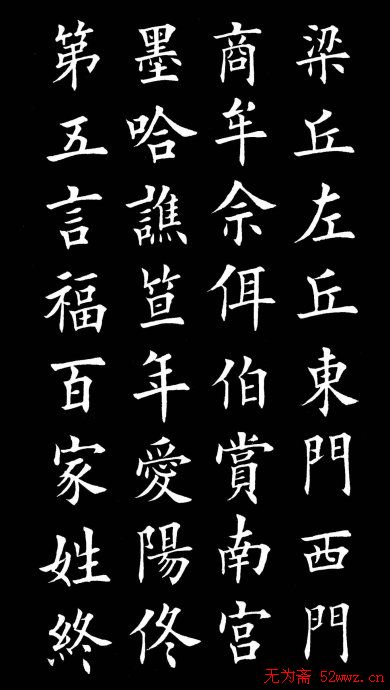 梁丘左丘東門西門
商牟佘佴伯賞南宮
墨哈譙笪年愛陽佟
第五言福百家姓終
无为斋 52wwz.cn